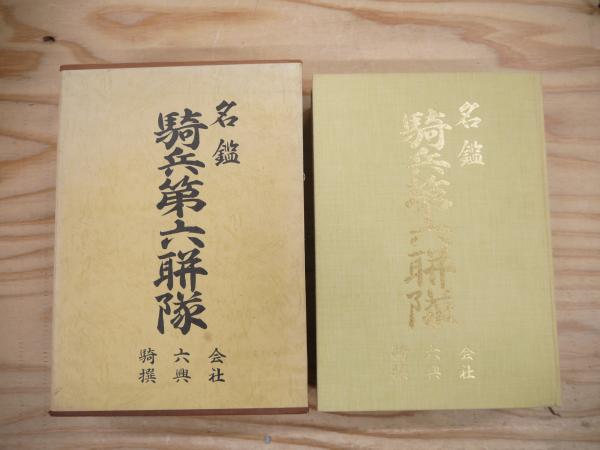 名鑑
騎兵第六聯隊
会社
六興
騎撰
名鑑
騎兵第六聯隊
会社
六興
騎撰